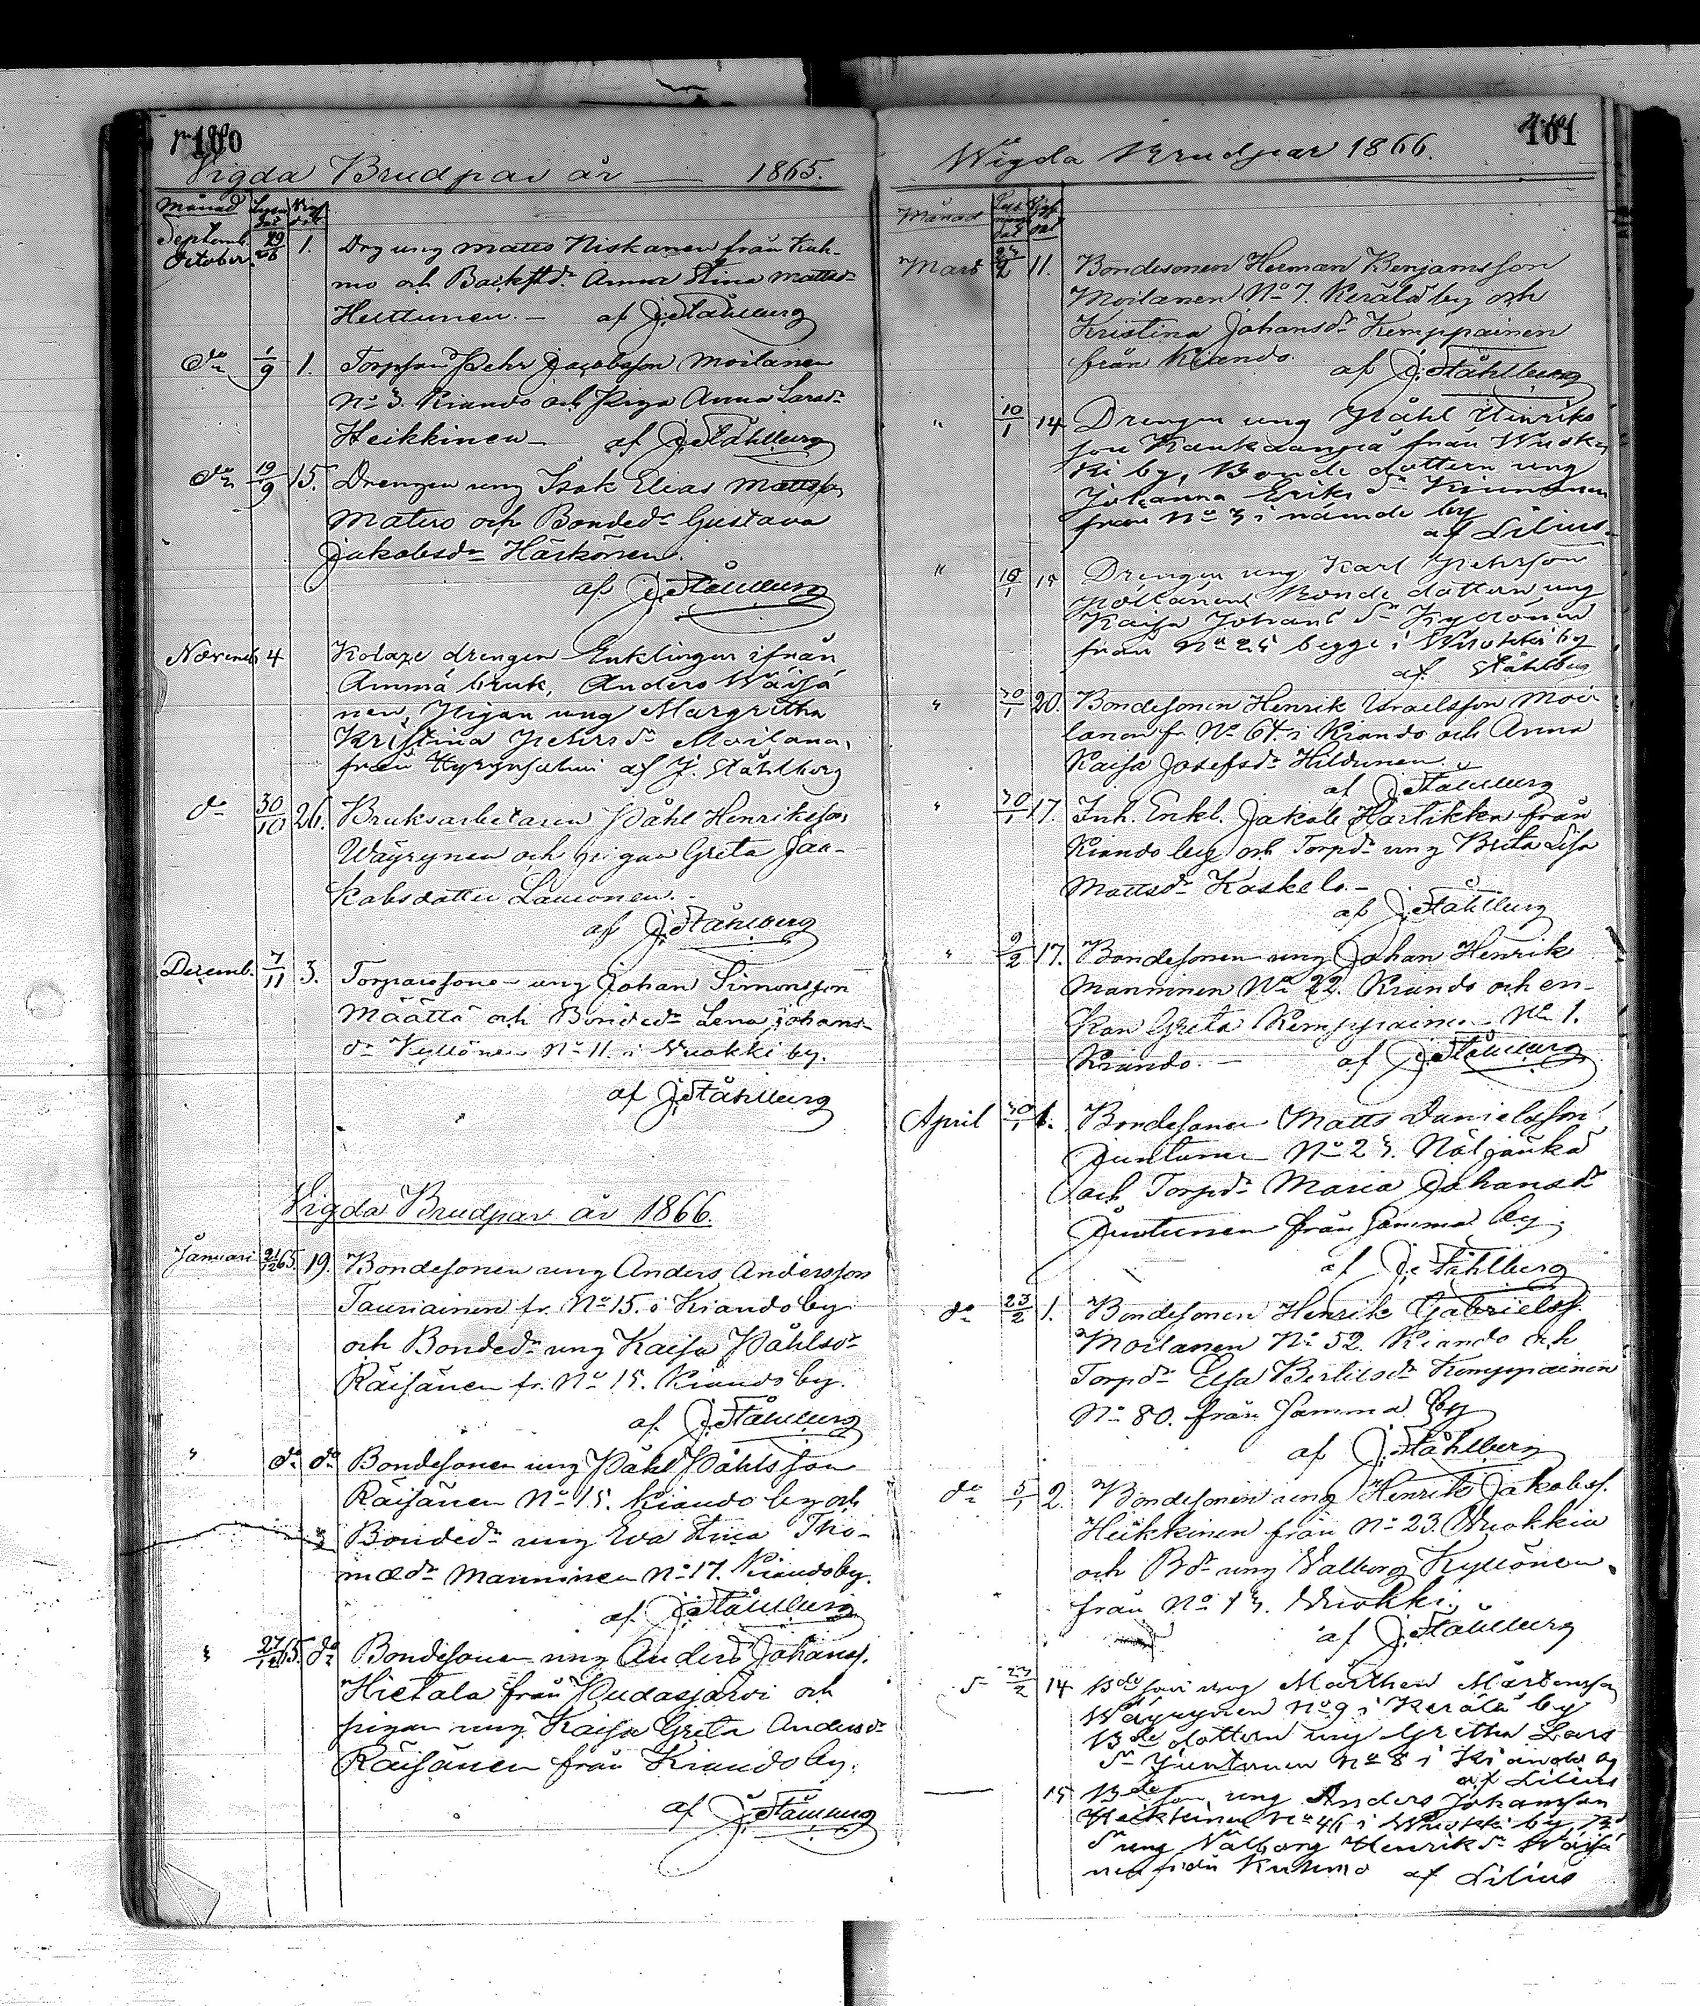 100
Vigda Brudpar år 1865.
Månad
Septemb. 29 1. Drg ung Matts Niskanen från Kuh-
October. mo och Backstd. Anna Stina Mattsd.
Huttunen. — af J. Ståhlberg
do 1/9 1. Torpson Pehr Jacobsson Moilanen
No 3. Kiando och Piga Anna Larsdr
Heikkinen — af J. Ståhlberg
do 19/9 15. Drengen ung Isak Elias Mattsson
Matero och Bondedr Gustava
Jakobsdr Härkönen.
af J. Ståhlberg
Novemb 4 drengen Enklingen ifrån
Ämmä bruk, Anders Wäisä
nen, Pigan ung Margretha
Kristina Pehrsdr Moilanen
från Hyrynsalmi af J. Ståhlberg
do 30/10 26. Bruksarbetaren Påhl Henriksson
Wäyrynen och pigan Greta Jaa-
kobsdotter
af J. Ståhlberg
Decemb. 7/11 3. Torparesone ung Johan Simonsson
Määttä och Bondedr Lena Johans-
dr Kyllönen No 11. i Wuokki by.
af J. Ståhlberg
Vigda Brudpar år 1866.
Januari 21/12 65. 19. Bondesonen ung Anders Andersson
Tauriainen fr. No 15. i Kiando by
och Bondedr ung Kaisa Påhlsdr
Räisänen fr. No 15. Kiando by.
af J. Ståhlberg
" do do Bondesonen ung Påhl Påhlsson
Räisänen No 15. Kiando by och
Bondedr ung Eva Stina Tho-
mædr Manninen No 17. Kiando by.
af J. Ståhlberg
" 27/12 65. do Bondesonen ung Anders Johanss.
Hietala från Pudasjärvi och
pigan ung Kaisa Greta Andersdr
Räisänen från Kiando by.
af J. Ståhlberg
101
Wigda Brudpar 1866.
Månad
Mars 11. Bondesonen Herman Benjamsson
Moilanen No 7. Kerälä by och
Kristina Johansdr Kemppainen
från Kiando. af J. Ståhlberg
" 10/1 14 Drengen ung Påhl Hinriks
son Kankaanpä från Wuok
ki by, Bonde dottern ung
Johanna Eriks dr Kinnunen
från No 3 i nämde by
af Lilius.
" 15 Drengen ung Karl Pehrsson
Bonde dottern ung
Kaisa Johans dr Kyllönen
från No 25 begge i Wuokki by
af Ståhlberg
" 30/1 20. Bondesonen Henrik Israelsson Moi-
lanen fr No 64. i Kiando och Anna
Kaisa Josefsdr Hildunen.
af J. Ståhlberg
" 30/1 17. Inh. Enkl. Jakob Hartikken från
Kiando by och Torpdr ung Brita Lisa
Mattsdr Koskelo. —
af J. Ståhlberg
" 9/2 17. Bondesonen ung Johan Henrik
Manninen No 22. Kiando och en-
kan Greta Kemppainen No 1.
Kiando. — af J. Ståhlberg
April 30/1 1. Bondesonen Matts Danielsson
Juntunen No 23. Näljänkä
och Torpdr Maria Johansdr
Juntunen från samma by.
af J. Ståhlberg
do 23/2 1. Bondesonen Henrik Gabrielss.
Moilanen No 52. Kiando och
Torpdr Elsa Bertilsdr Kemppainen
No 80. från samma by
af J. Ståhlberg
do 5/1 2. Bondesonen ung Henrik Jakobss.
Heikkinen från No 23. Wuokkia
och Bdr ung Walborg Kyllönen
från No 13. Wuokki.
af J. Ståhlberg
23/2 14 Bde son ung Mårthen Mårtensson
Wäyrynen No 9 i Kerälä by
Bde dottern ung Gretha Lars
dr Juntunen No 8 i Kiando by
af Lilius
15 Bde son, ung Anders Johansson
Heikkinen No 46 i Wuokki by, Bd
dr ung Valborg Henriks dr Wäisä
nen från Kuhmo af Lilius